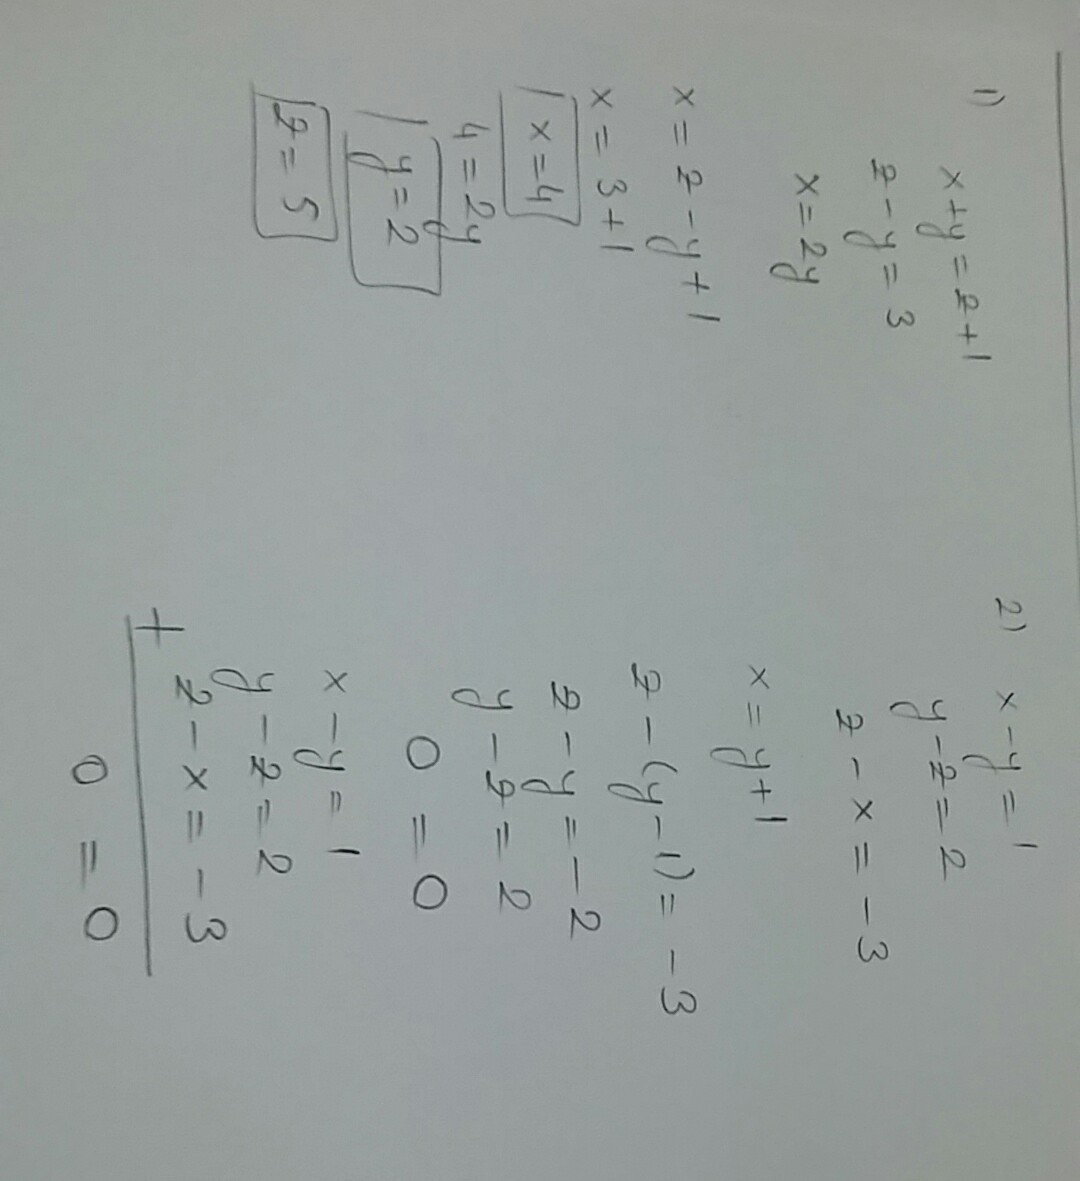 1) x+y=z+1
z-y=3
x=2y
x=z-y+1
x=3+1
x=4
4=2y
y=2
z=5
2) x-y=1
y-z=2
z-x=-3
x=y+1
z-(y-1)=-3
z-y=-2
y-z=2
0=0
x-y=1
y-z=2
+ z-x=-3
0=0